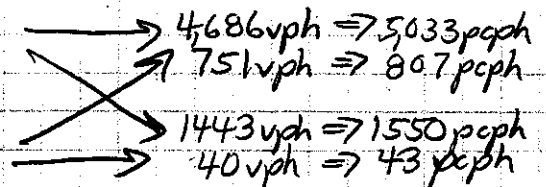 4,686vph => 5,033pcph
751vph => 807pcph
1443vph => 1550pcph
40vph => 43pcph